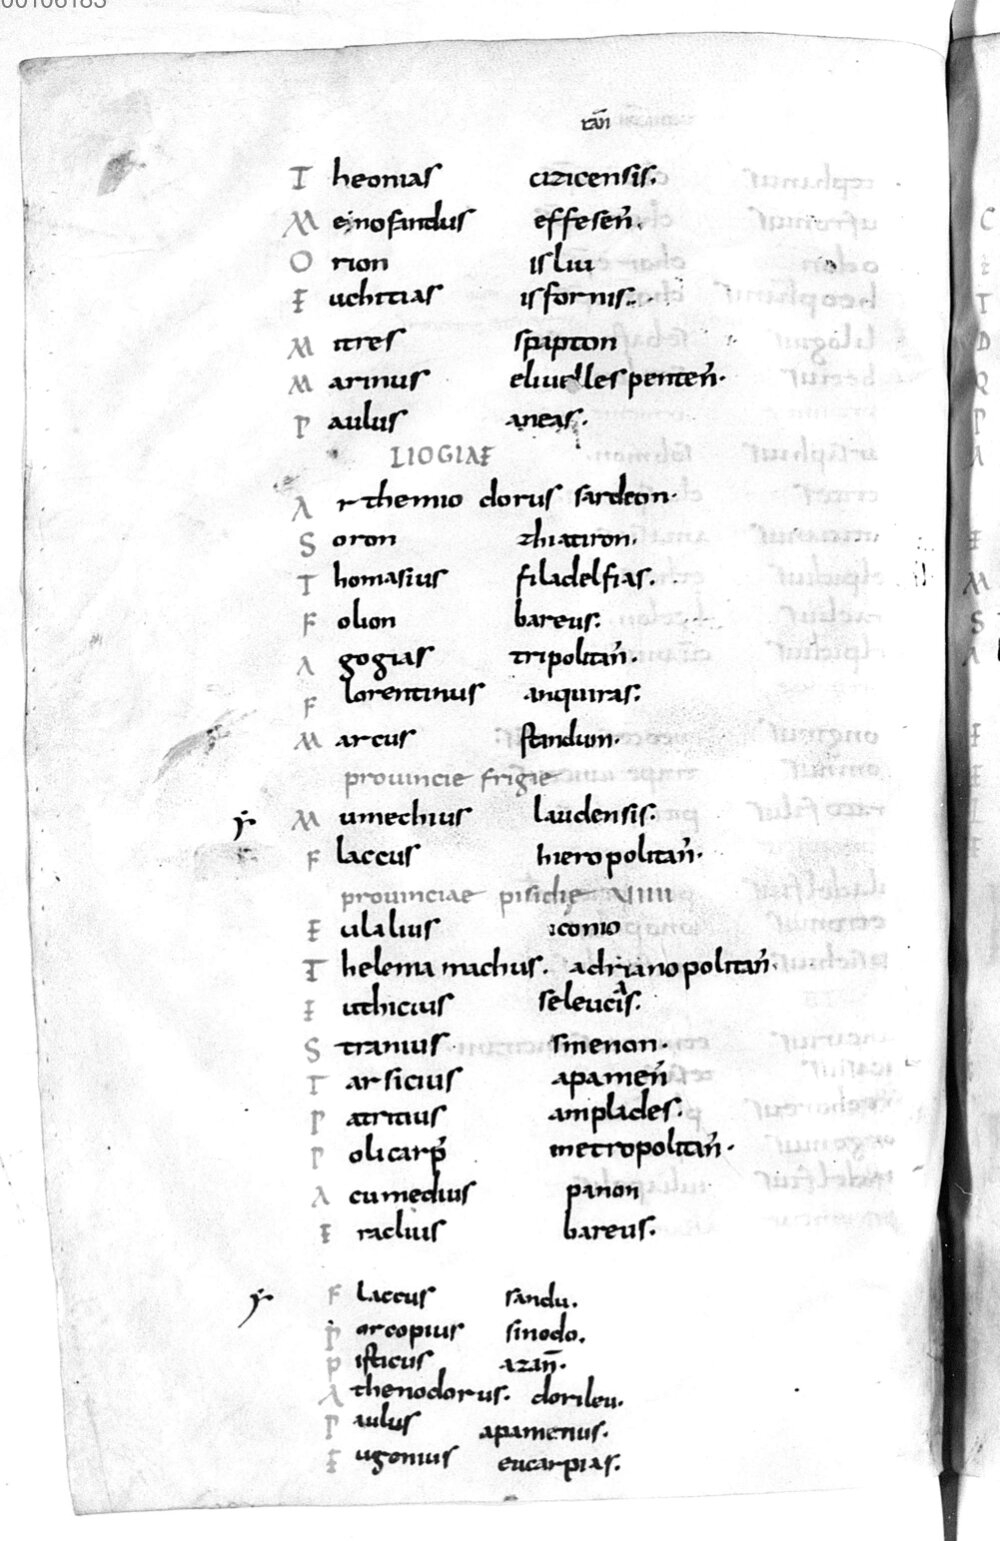 00106183
rān
Theonias cizicensis.
Menofandus effesen̄.
Orion isliu
Euchitias isfornis.
Mitres spipton
Marinus eliuelles penten̄.
Paulus aneas.
LIOGIAE
Arthemio dorus sardeon.
Soron thiatiron.
Thomasius filadelfias.
Folion bareus:
Agogias tripolitan̄.
Florentinus anquiras:
Marcus standon.
prouincie frigie
Mumechius laudensis.
Flaccus hieropolitan̄.
prouinciae pisidię XIIII
Eulalius iconio
Thelemamachus. adrianopolitan̄.
Euthicius seleucias.
Stranius smenon.
Tarsicius apamen̄
Patritius amplades.
Policarp̄ metropolitan̄.
Acumedius panon
Eraclius bareus.
Flaccus sandu.
Parcopius sinodo.
Pisticus azan̄.
Athenodorus. dorileu.
Paulus apamenus.
Eugonius eucarpias.